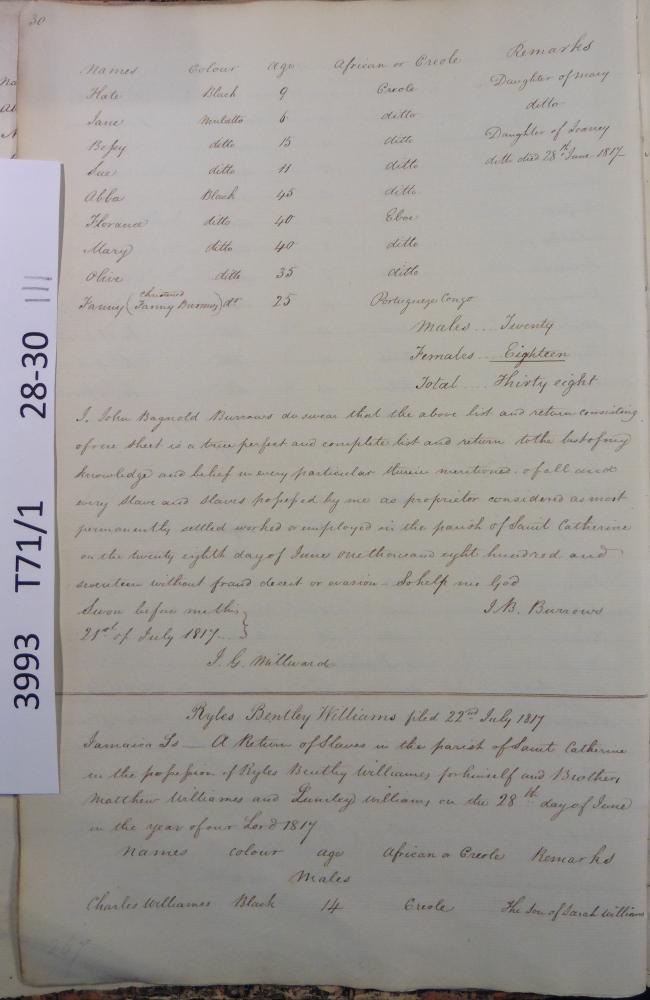 30
Names Colour Age African or Creole Remarks
Kate Black 9 Creole Daughter of Mary
Jane Mulatto 6 ditto ditto
Bessy ditto 15 ditto Daughter of Joaney
Sue ditto 11 ditto ditto died 28th June 1817
Abba Black 45 ditto
Florand ditto 40 Eboe
Mary ditto 40 ditto
Olive ditto 35 ditto
Fanny (christened Fanny Burrows) do 25 Portuguese Congo
Males .... Twenty
Females .... Eighteen
Total .... Thirty eight
I, John Bagnold Burrows do swear that the above list and return consisting
of one sheet is a true perfect and complete list and return to the best of my
knowledge and belief in every particular therein mentioned of all and
every slave and slaves possessed by me as proprietor considered as most
permanently settled worked or employed in the parish of Saint Catherine
on the twenty eighth day of June one thousand eight hundred and
seventeen without fraud deceit or evasion – So help me God
Sworn before me this J. B. Burrows
21st of July 1817
J. G. Millward
Ryles Bentley Williams filed 22nd July 1817
Jamaica Ss — A Return of Slaves in the parish of Saint Catherine
in the possession of Ryles Bentley Williames for himself and Brothers
Matthew Williames and Lumley Williams, on the 28th day of June
in the year of our Lord 1817
Names Colour Age African or Creole Remarks
Males
Charles Williames Black 14 Creole The son of Sarah Williams
267
3993 T71/1 28-30 |||